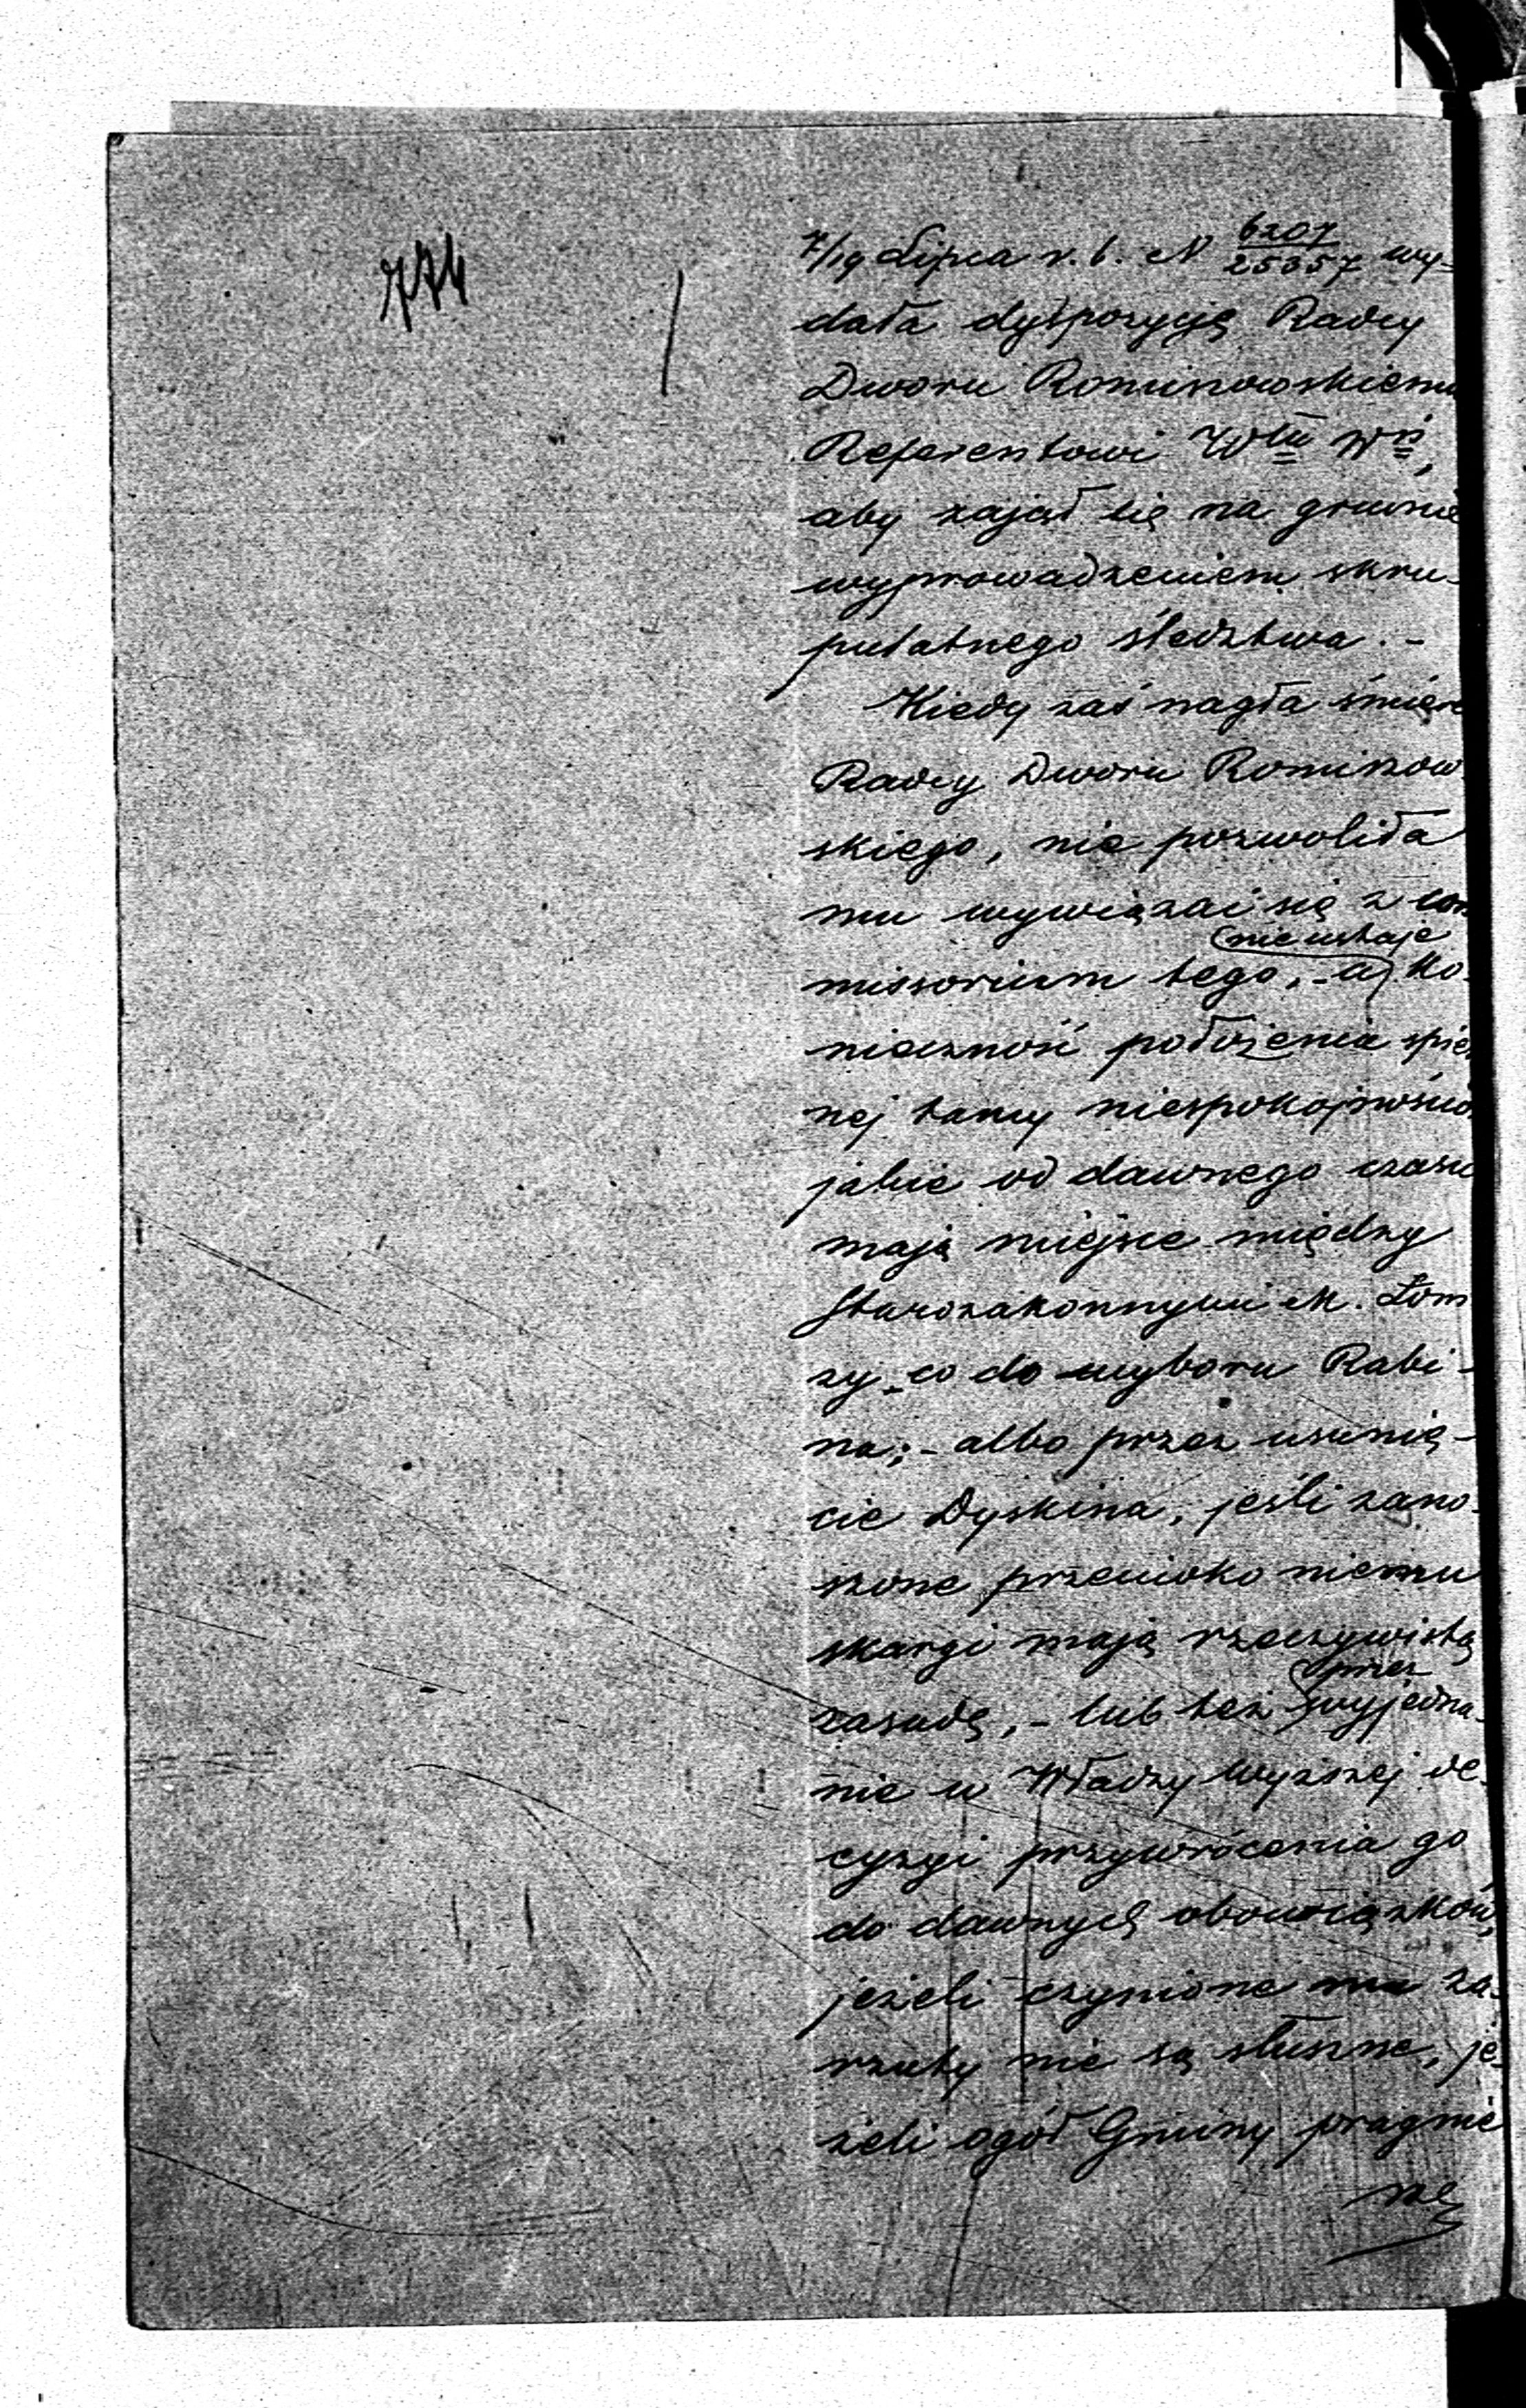 774
7/19 Lipca r. b. N 6207/25357 wy-
dała dyspozycję Radcy
Dworu Romiszowskiemu
Referentowi Włu Wń,
aby zajął się na gruncie
wyprowadzeniem skru-
pulatnego śledztwa. -
Kiedy zaś nagła śmierć
Radcy Dworu Romiszow
skiego, nie pozwoliła
mu wywiązać się z com
nie ustaje
missorium tego, - a ko-
nieczność położenia spiesz
nej tamy niespokojnością
jakie od dawnego czasu
mają miejsce między
Starozakonnymi M. Łom
ży, co do wyboru Rabi-
na; - albo przez usunię-
cie Dyskina, jeśli zano-
szone przeciwko niemu
skargi mają rzeczywistą
przez
zasadę, - lub też wyjedna-
nie u Władzy Wyższej de-
cyzyi przywrócenia go
do dawnych obowiązków,
jeżeli czynione mu za-
rzuty nie są słuszne, je-
żeli ogół Gminy pragnie